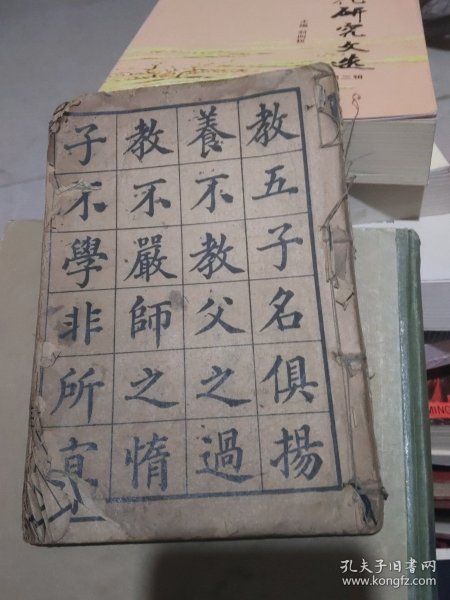 教五子名俱揚
養不教父之過
教不嚴師之惰
子不學非所宜
研究文选
主编
孔夫子旧书网
www.kongfz.com